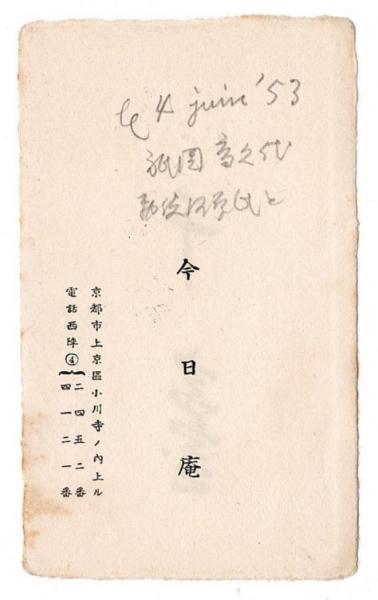 le 4 juin '53
祇園
今日庵
京都市上京區小川寺ノ內上ル
電話西陣④二四五二番
四一二一番